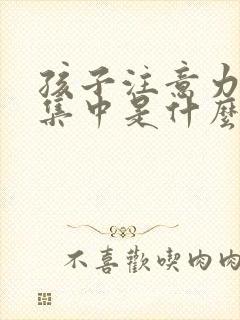 孩子注意力
集中是什麼
不喜歡喫肉肉